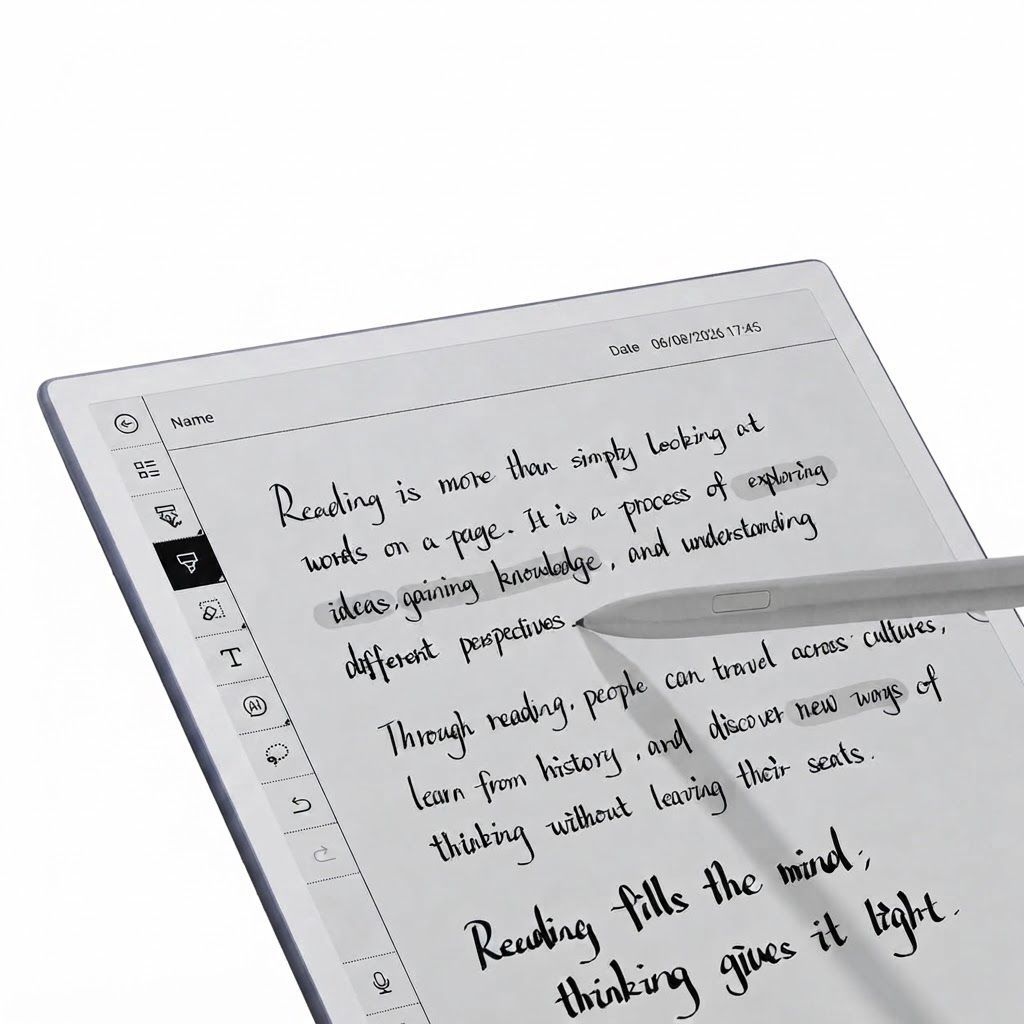 Date 06/08/2026 17:45
Name
Reading is more than simply looking at
words on a page. It is a process of exploring
ideas, gaining knowledge, and understanding
different perspectives.
Through reading, people can travel across cultures,
learn from history, and discover new ways of
thinking without leaving their seats.
Reading fills the mind;
thinking gives it light.
T
AI